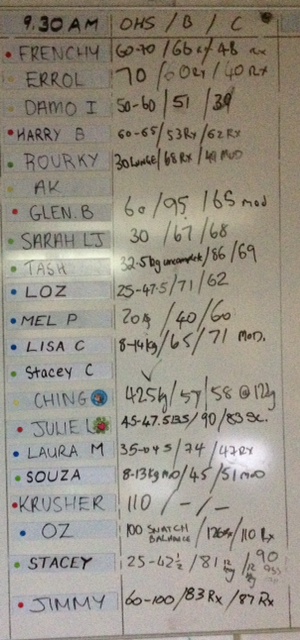 9.30 AM OHS / B / C
FRENCHY 60-70 / 66 / 48 Rx
ERROL 70 / 60Rx / 40 Rx
DAMO I 50-60 / 51 / 39
HARRY B 60-65 / 53Rx / 62Rx
ROURKY 30 LUNGE / 68 Rx / 49 MOD
AK
GLEN.B 60 / 95 / 65 mod
SARAH LJ 30 / 67 / 68
TASH 32.5kg uncomplete / 86 / 69
LOZ 25-47.5 / 71 / 62
MEL P 20kg / 40 / 60
LISA C 8-14kg / 65 / 71 MOD.
Stacey C
CHING 42.5kg / 57 / 58 @ 12kg
JULIE L 45-47.5 / 90 / 83 Sc.
LAURA M 35- / 74 / 47Rx
SOUZA 8-13kg / 45 / 51 MOD
KRUSHER 110 / - / -
OZ 100 SNATCH BALANCE / 126Rx / 110 Rx
STACEY 25-42½ / 81 12kg / 90
JIMMY 60-100 / 83 Rx / 87 Rx